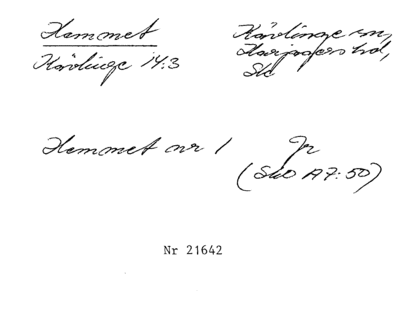 Hemmet
Kävlinge 14:3
Kävlinge sn,
Harjagers hd,
Sk
Hemmet nr 1 Jr
(SkO A7:50)
Nr 21642